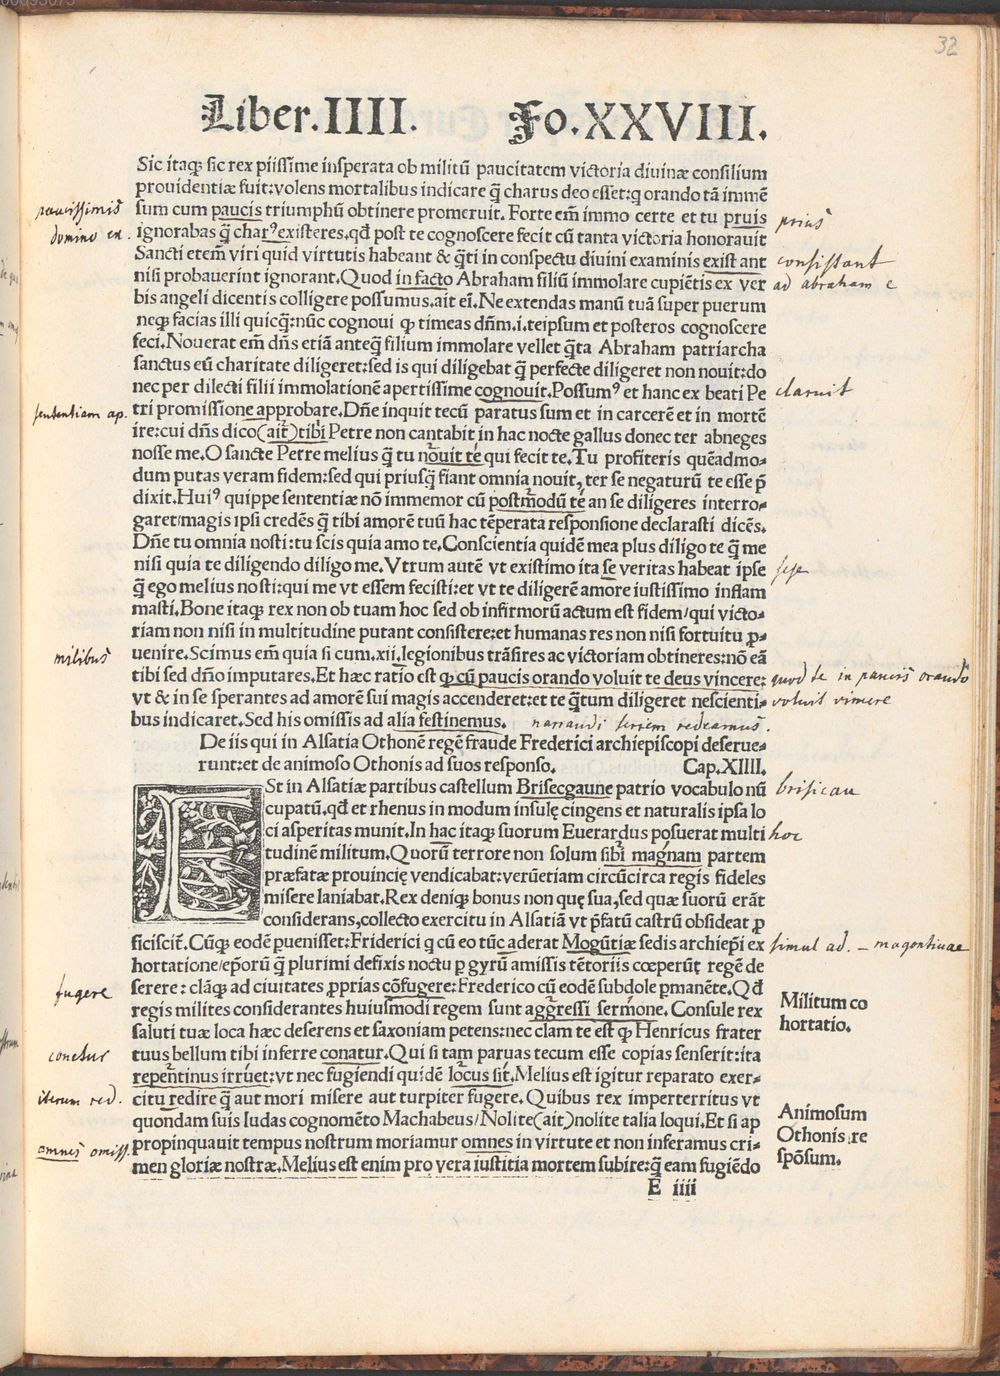 32
Liber.IIII. Fo.XXVIII.
Sic itaq; sic rex piissime insperata ob militũ paucitatem victoria diuinæ consilium
prouidentiæ fuit:volens mortalibus indicare q̃ charus deo esset:q orando tã immẽ
sum cum paucis triumphũ obtinere promeruit. Forte em̃ immo certe et tu pruis
ignorabas q̃ charꝰ existeres.qđ post te cognoscere fecit cũ tanta victoria honorauit
Sancti etem̃ viri quid virtutis habeant & q̃ti in conspectu diuini examinis exist ant
nisi probauerint ignorant. Quod in facto Abraham filiũ immolare cupiẽtis ex ver
bis angeli dicentis colligere possumus.ait eĩ. Ne extendas manũ tuã super puerum
neq; facias illi quicq̃:nũc cognoui ꝙ timeas dñm.i.teipsum et posteros cognoscere
feci. Nouerat em̃ dñs etiã anteq̃ filium immolare vellet q̃ta Abraham patriarcha
sanctus eũ charitate diligeret:sed is qui diligebat q̃ perfecte diligeret non nouit:do
nec per dilecti filii immolationẽ apertissime cognouit. Possumꝰ et hanc ex beati Pe
tri promissione approbare. Dñe inquit tecũ paratus sum et in carcerẽ et in mortẽ
ire:cui dñs dico(ait)tibi Petre non cantabit in hac nocte gallus donec ter abneges
nosse me. O sancte Petre melius q̃ tu nouit te qui fecit te. Tu profiteris quẽadmo⸗
dum putas veram fidem:sed qui priusq̃ fiant omnia nouit, ter se negaturũ te esse p̃
dixit. Huiꝰ quippe sententiæ nõ immemor cũ postmodũ te an se diligeres interro⸗
garet/magis ipsi credẽs q̃ tibi amorẽ tuũ hac tẽperata responsione declarasti dicẽs.
Dñe tu omnia nosti:tu scis quia amo te. Conscientia quidẽ mea plus diligo te q̃ me
nisi quia te diligendo diligo me. Vtrum autẽ vt existimo ita se veritas habeat ipse
q̃ ego melius nosti:qui me vt essem fecisti:et vt te diligerẽ amore iustissimo inflam
masti. Bone itaq; rex non ob tuam hoc sed ob infirmorũ actum est fidem/qui victo⸗
riam non nisi in multitudine putant consistere:et humanas res non nisi fortuitu ꝓ⸗
uenire. Scimus em̃ quia si cum.xii.legionibus trãsires ac victoriam obtineres:nõ eã
tibi sed dño imputares. Et hæc ratio est ꝙ cũ paucis orando voluit te deus vincere:
vt & in se sperantes ad amorẽ sui magis accenderet:et te q̃tum diligeret nescienti⸗
bus indicaret. Sed his omissis ad alia festinemus. narrandi seriem redeamus.
De iis qui in Alsatia Othonẽ regẽ fraude Frederici archiepiscopi deserue⸗
runt:et de animoso Othonis ad suos responso. Cap.XIIII.
ESt in Alsatiæ partibus castellum Brisecgaune patrio vocabulo nũ
cupatũ.qđ et rhenus in modum insulę cingens et naturalis ipsa lo
ci asperitas munit. In hac itaq; suorum Euerardus posuerat multi
tudinẽ militum. Quorũ terrore non solum sibi magnam partem
præfatæ prouincię vendicabat:verũetiam circũcirca regis fideles
misere laniabat. Rex deniq; bonus non quę sua,sed quæ suorũ erãt
considerans,collecto exercitu in Alsatiã vt p̃fatũ castrũ obsideat ꝓ
ficiscit̃. Cũq; eodẽ puenisset:Friderici q cũ eo tũc aderat Mogũtiæ sedis archiep̃i ex
hortatione/ep̃orũ q̃ plurimi defixis noctu p gyrũ amissis tẽtoriis cœperũt regẽ de
serere: clãq; ad ciuitates ꝓprias cõfugere:Frederico cũ eodẽ subdole ꝑmanẽte. Qđ
regis milites considerantes huiusmodi regem sunt aggressi sermone. Consule rex
saluti tuæ loca hæc deserens et saxoniam petens:nec clam te est ꝙ Henricus frater
tuus bellum tibi inferre conatur. Qui si tam paruas tecum esse copias senserit:ita
repentinus irruet:vt nec fugiendi quidẽ locus sit. Melius est igitur reparato exer⸗
citu redire q̃ aut mori misere aut turpiter fugere. Quibus rex imperterritus vt
quondam suis Iudas cognomẽto Machabeus/Nolite(ait)nolite talia loqui. Et si ap
propinquauit tempus nostrum moriamur omnes in virtute et non inferamus cri⸗
men gloriæ nostræ. Melius est enim pro vera iustitia mortem subire:q̃ eam fugiẽdo
E iiii
paucissimis
domino ex.
sententiam ap.
milibus
fugere
conetur
iterum red.
omnes omiss.
prius
consistant
ad abraham
claruit
sese
quod te in paucis orando
voluit vincere
brisicau
hoc
simul ad. – magontinae
Militum co
hortatio.
Animosum
Othonis re
spõsum.